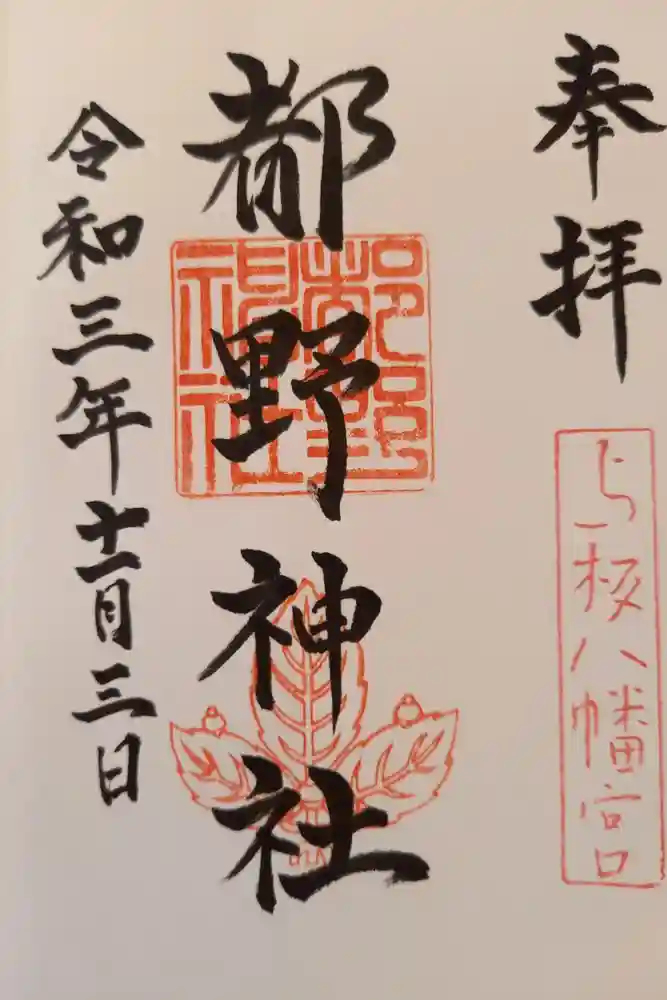 奉拝
与板八幡宮
都野神社
都野
神社
令和三年十一月三日